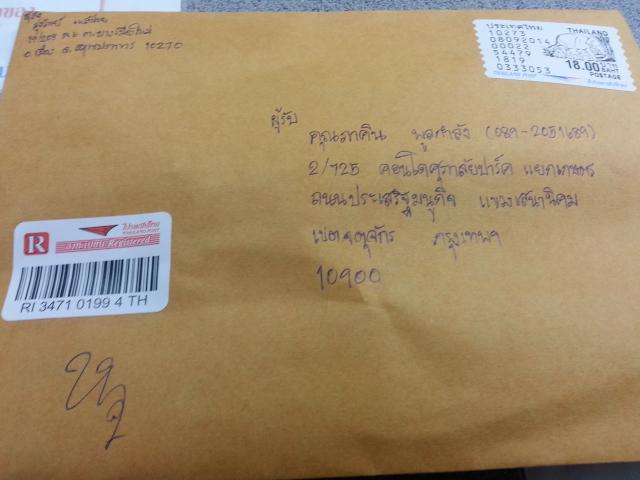 อ.เมือง จ.สมุทรปราการ 10270
ประเทศไทย THAILAND
10273
08092014
00022
54479
1819
0333053
18.00 บาท BAHT
POSTAGE
THAILAND POST ไปรษณีย์ไทย
ผู้รับ
คุณภาคิน พูลกำลัง (089-2051689)
2/725 คอนโดศุภาลัยปาร์ค แยกเกษตร
ถนนประเสริฐมนูกิจ แขวงเสนานิคม
เขตจตุจักร กรุงเทพฯ
10900
ไปรษณีย์ไทย
THAILAND POST
R ลงทะเบียน Registered
RI 3471 0199 4 TH